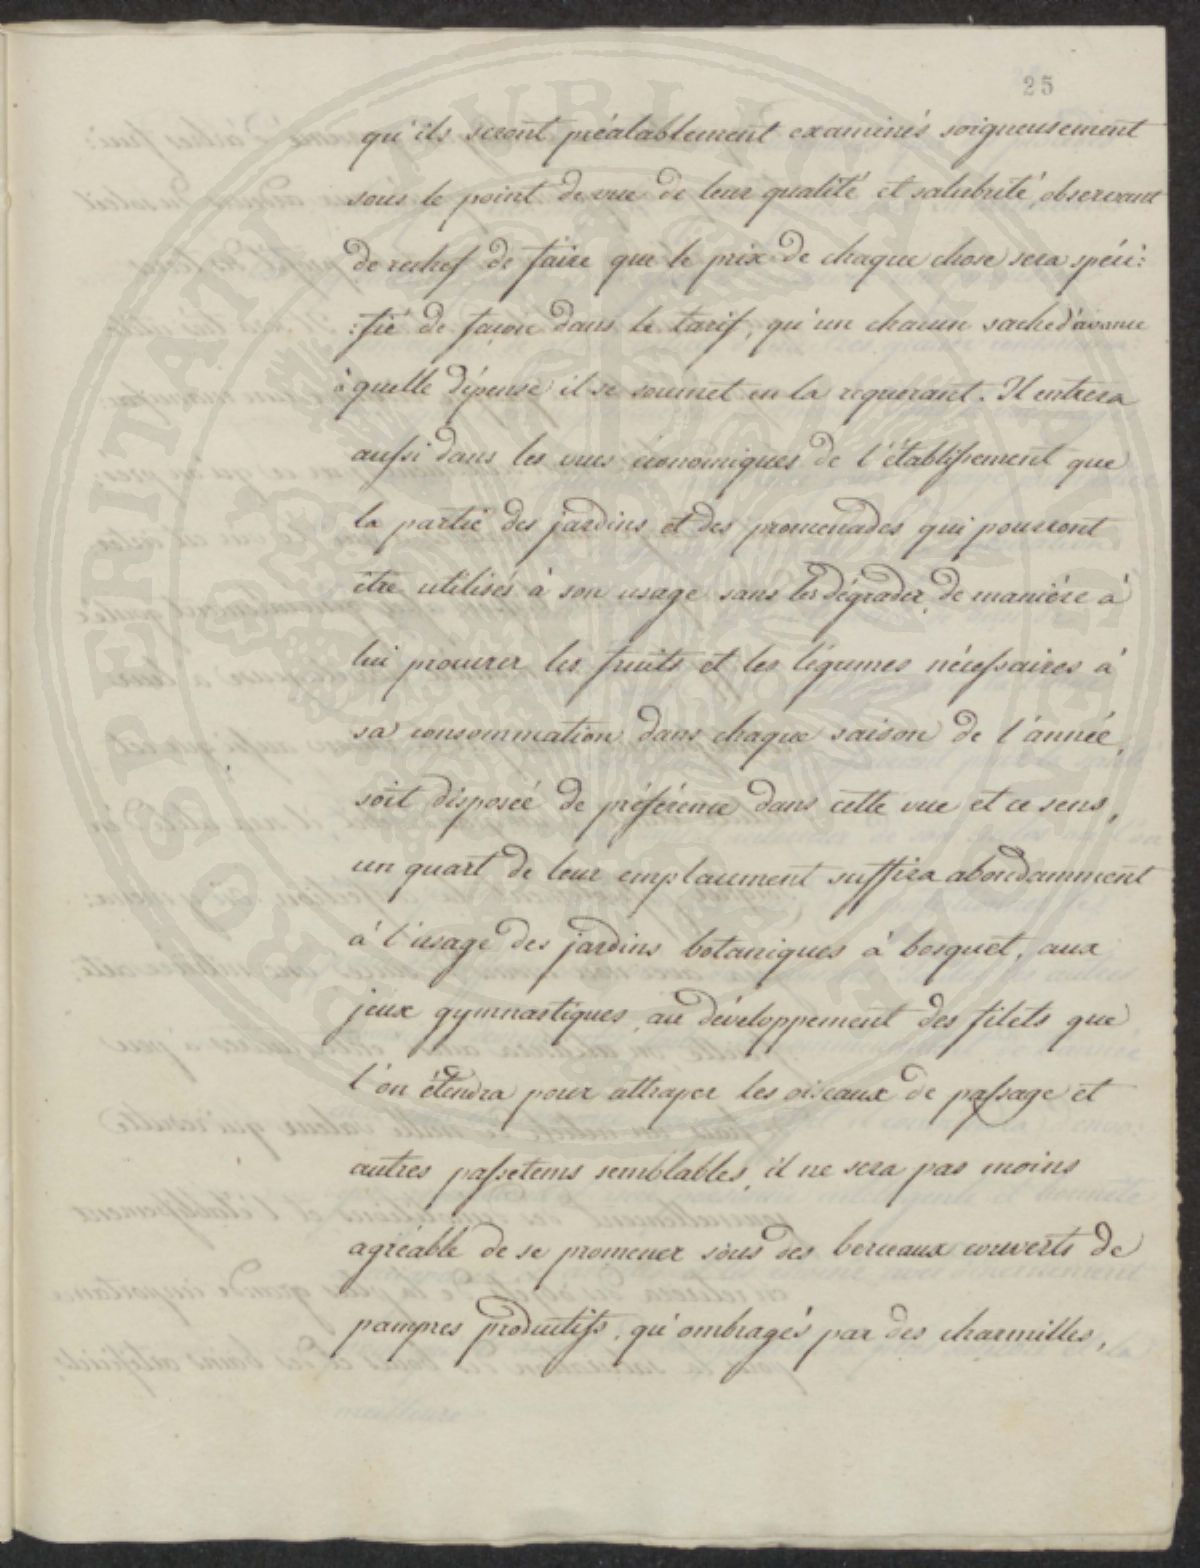 25
qu'ils seront préalablement examinés soigneusement
sous le point de vue de leur qualité et salubrité, observant
de rechef de faire que le prix de chaque chose sera spéci:
:fié de façon dans le tarif, qu'un chacun sache d'avance
à quelle dépense il se soumet en la requerant. Il entrera
aussi dans les vues économiques de l'établissement que
la partie des jardins et des promenades qui pourront
être utilisés à son usage sans les dégrader, de manière à
lui procurer les fruits et les légumes nécessaires à
sa consommation dans chaque saison de l'année,
soit disposée de préférence dans cette vue et ce sens,
un quart de leur emplacement suffira abondamment
à l'usage des jardins botaniques à bosquet, aux
jeux gymnastiques, au développement des filets que
l'on étendra pour attraper les oiseaux de passage et
autres passetems semblables, il ne sera pas moins
agréable de se promener sous des berceaux couverts de
pampres productifs, qu'ombragés par des charmilles,
PROSPERITATI PUBLICAE